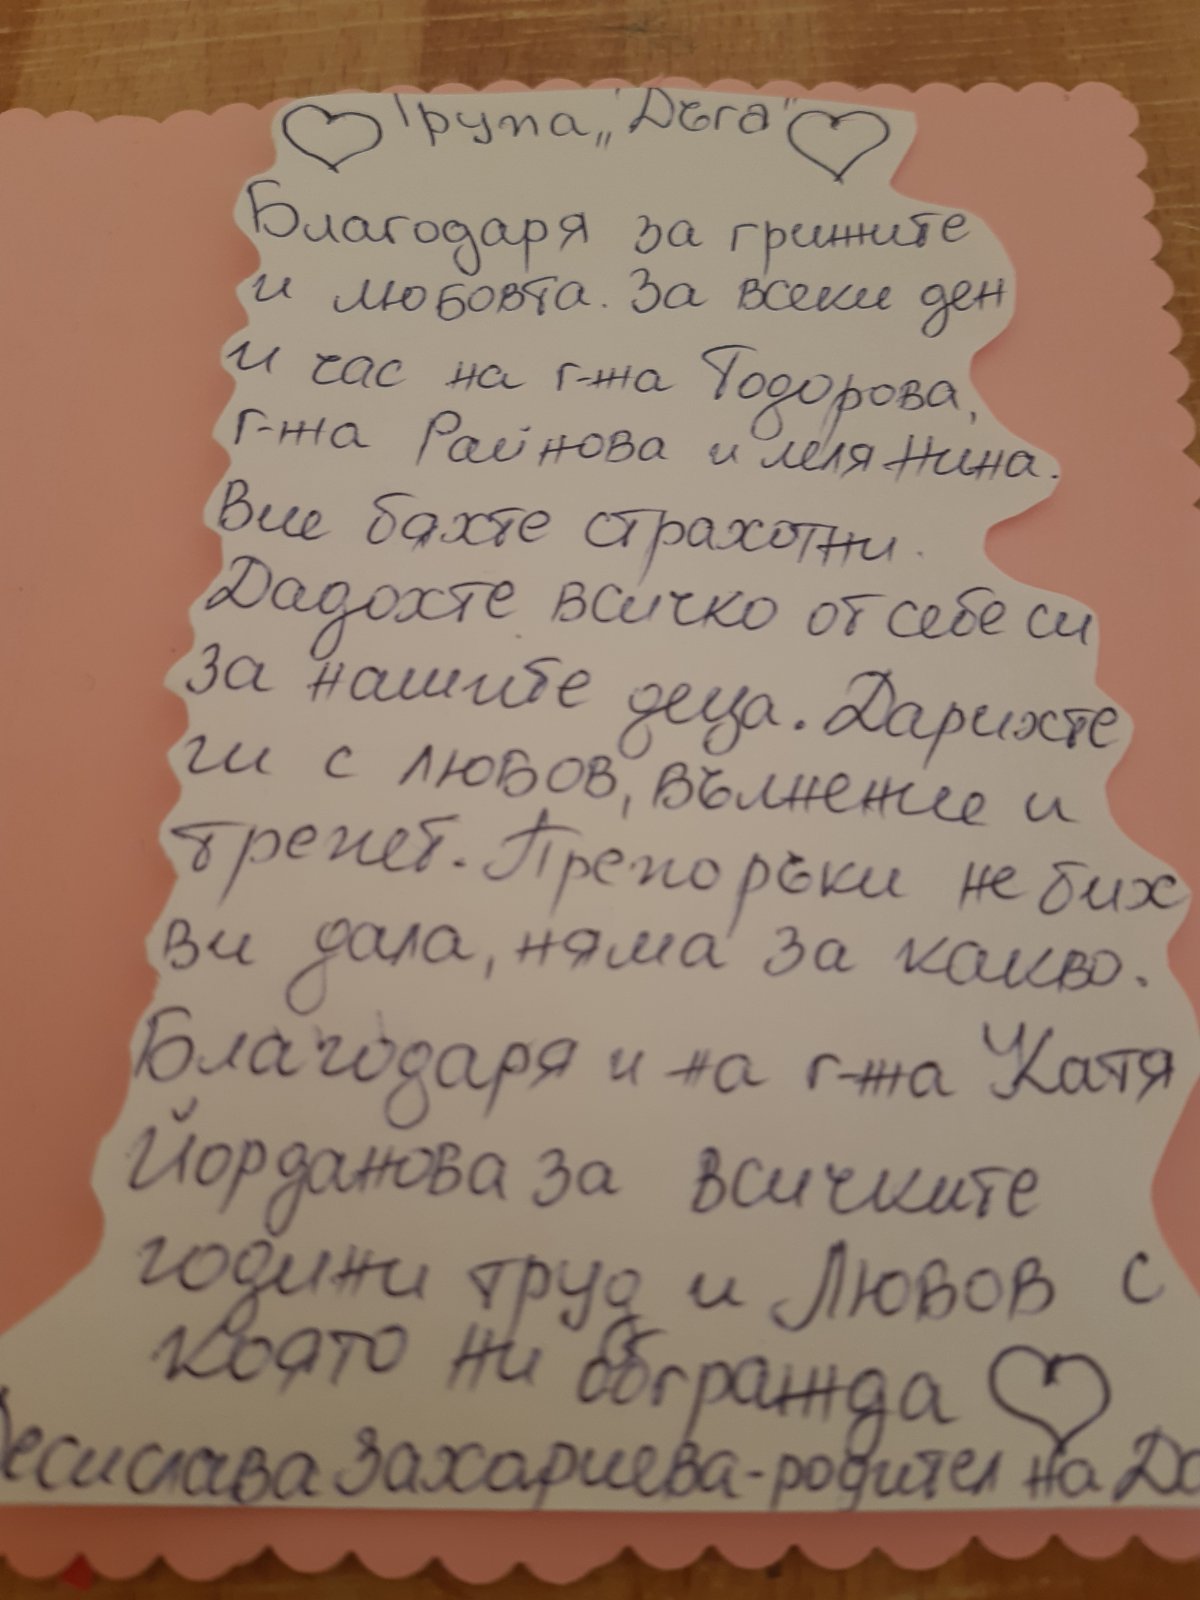 Група „Дъга“
Благодаря за грижите
и любовта. За всеки ден
и час на г-жа Тодорова,
г-жа Райнова и леля Нина.
Вие бяхте страхотни.
Дадохте всичко от себе си
за нашите деца. Дарихте
ги с любов, вълнение и
трепет. Препоръки не бих
ви дала, няма за какво.
Благодаря и на г-жа Катя
Йорданова за всичките
години труд и Любов с
която ни обгражда
Десислава Захариева-родител на